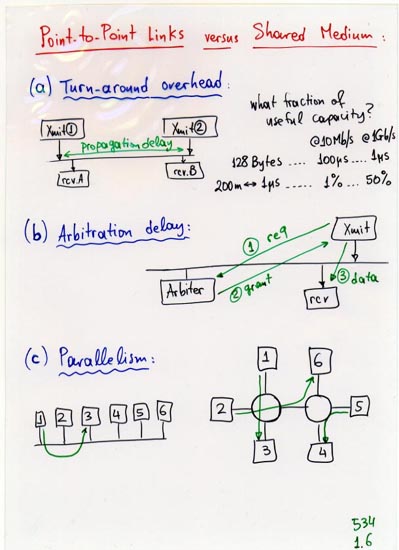 Point-to-Point Links versus Shared Medium:
(a) Turn-around overhead:
what fraction of
useful capacity?
@10Mb/s @1Gb/s
128 Bytes ..... 100μs ..... 1μs
200m ↔ 1μs ...... 1% ... 50%
Xmit① Xmit②
propagation delay
rcv.A rcv.B
(b) Arbitration delay:
① req Xmit
Arbiter ② grant rcv ③ data
(c) Parallelism:
1 2 3 4 5 6
1 6
2 5
3 4
534
1.6